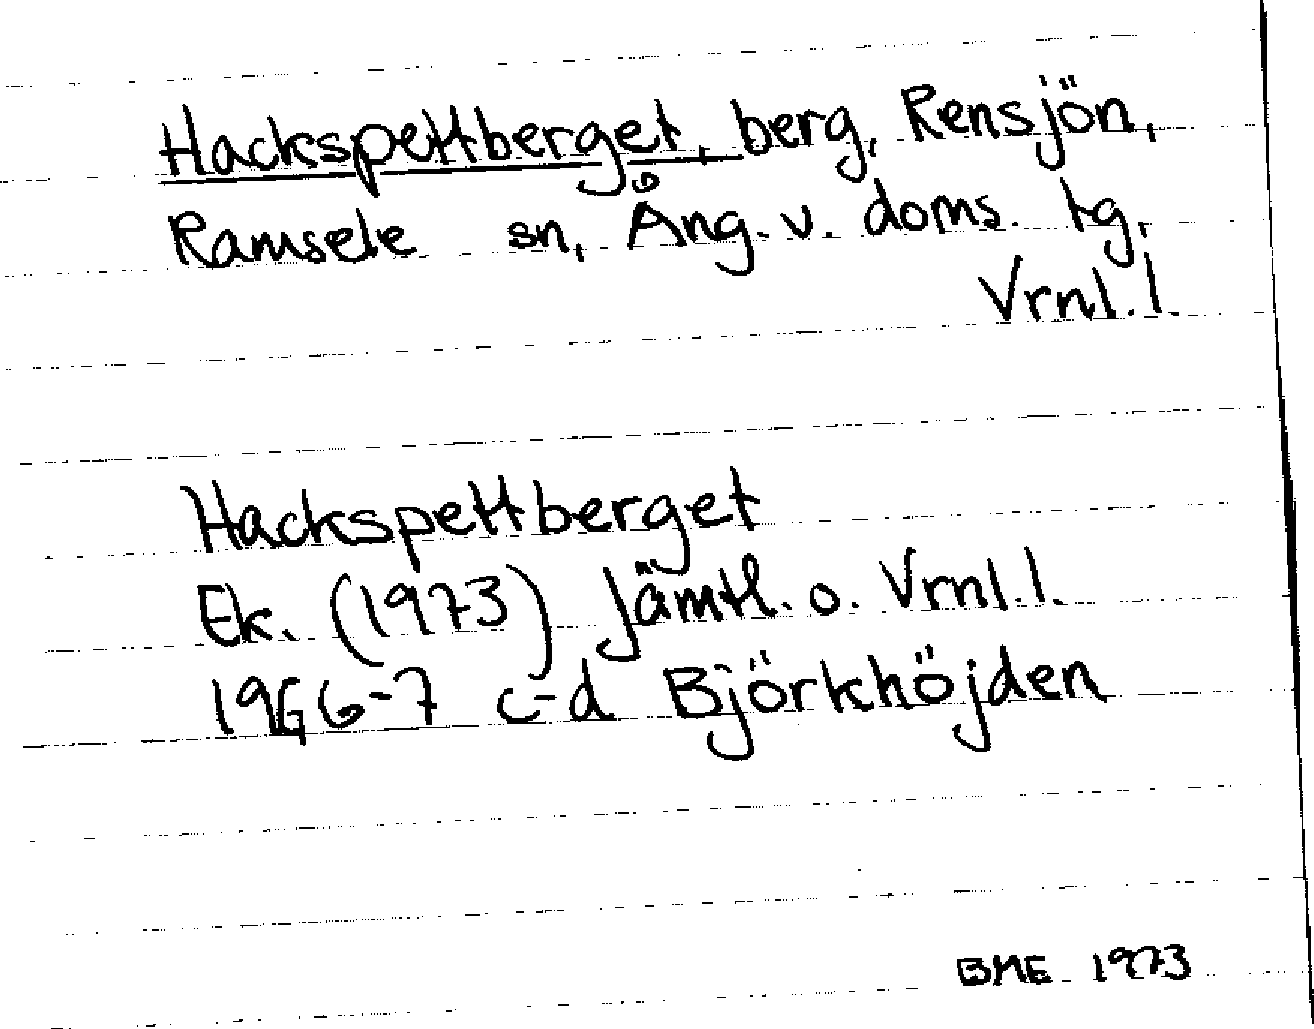 Hackspettberget, berg, Rensjön,
Ramsele sn, Ång. v. doms. tg,
Vrnl. l.
Hackspettberget
Ek. (1973) Jämtl. o. Vrnl. l.
19G6-7 c-d Björkhöjden
BME 1973